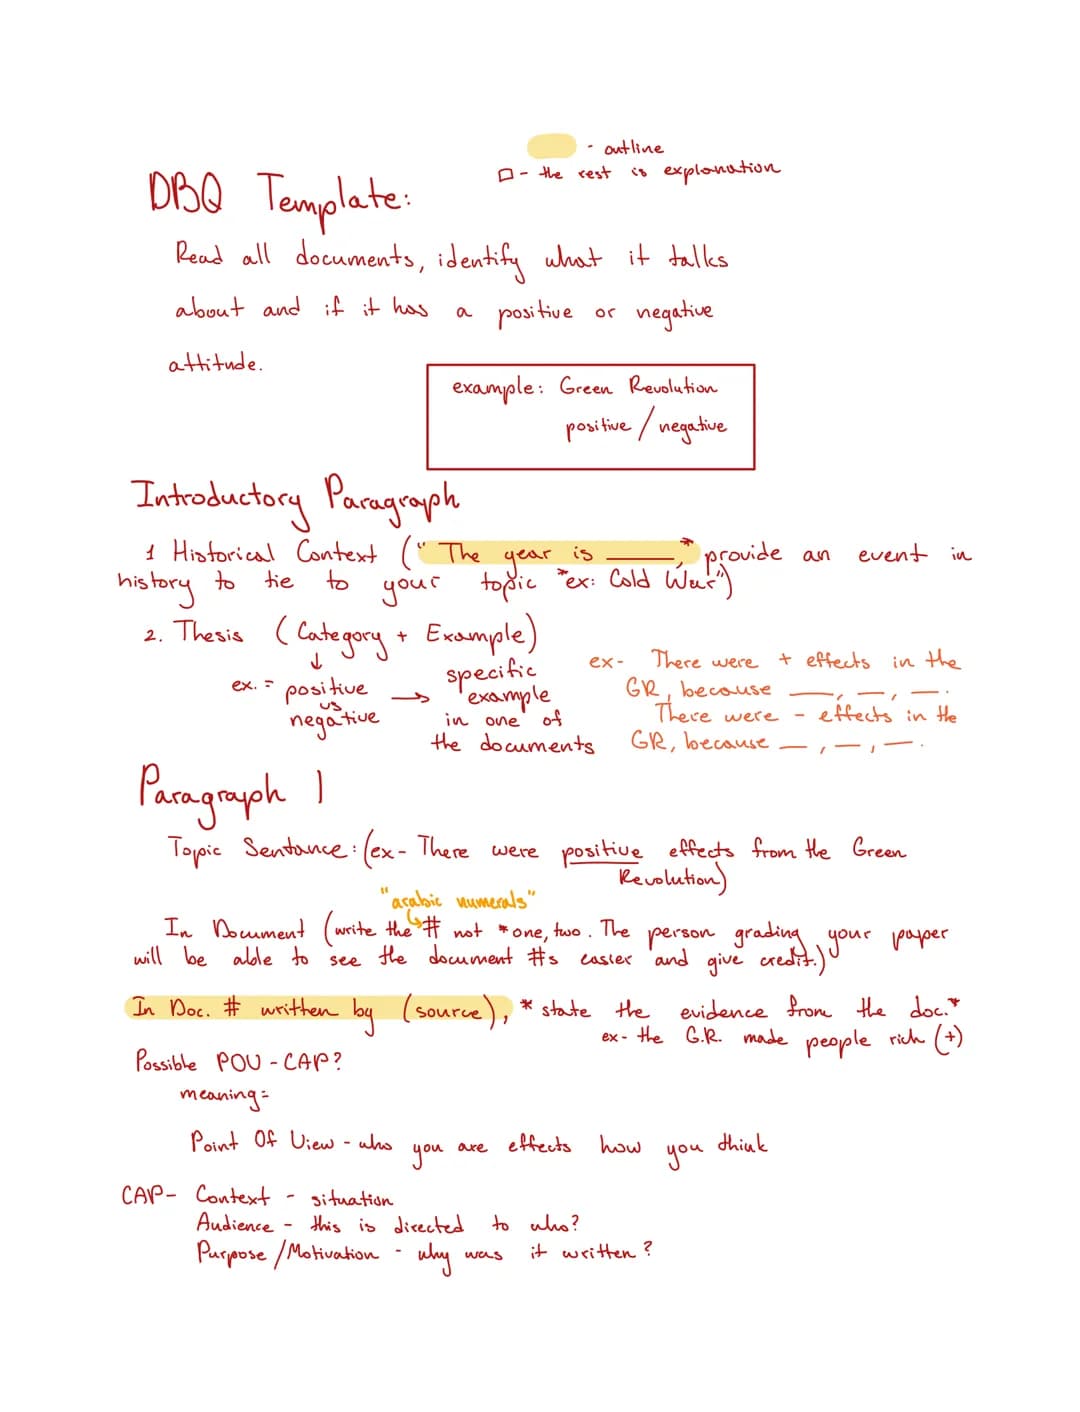 - outline
□ - the rest is explanation
DBQ Template:
Read all documents, identify what it talks
about and if it has a positive or negative
attitude.
example: Green Revolution
positive / negative
Introductory Paragraph
1 Historical Context (" The year is ____," *provide an event in
history to tie to your topic *ex: Cold War")
2. Thesis ( Category + Example)
↓
ex. = positive → specific
vs example
negative in one of
the documents
ex- There were + effects in the
GR, because __, __, __.
There were - effects in the
GR, because __, __, __.
Paragraph 1
Topic Sentance: (ex- There were positive effects from the Green
Revolution)
"arabic numerals"
In Document (write the # not *one, two. The person grading your paper
will be able to see the document #s easier and give credit.)
In Doc. # written by (source), * state the evidence from the doc.*
ex- the G.R. made people rich (+)
Possible POU - CAP?
meaning=
Point Of View - who you are effects how you think
CAP- Context - situation
Audience - this is directed to who?
Purpose /Motivation - why was it written?